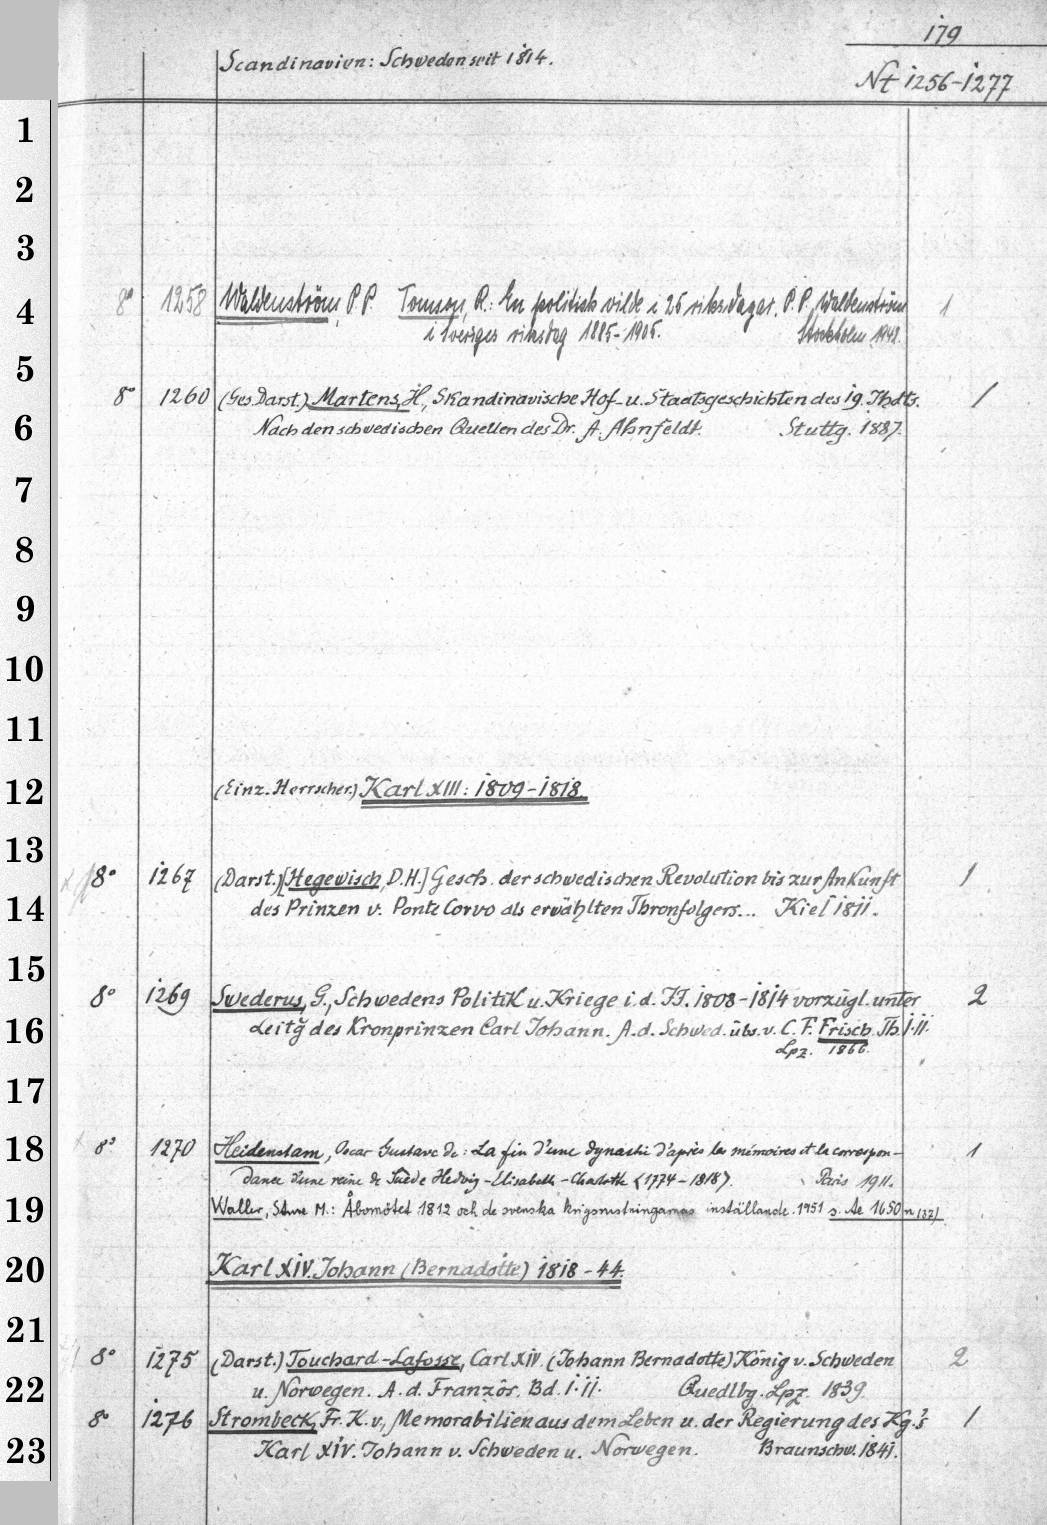 179
Scandinavien: Schweden seit 1814.
Nt 1256-1277
1
2
3
4
8° 1258 Waldenström, P. P. Tomson, R.: En politisk vilde i 25 riksdagar. P. P. Waldenström 1
i Sveriges riksdag 1885-1905. Stockholm 1942.
5
8° 1260 (Ges. Darst.) Martens, H., Skandinavische Hof- u. Staatsgeschichten des 19. Jhdts. 1
6
Nach den schwedischen Quellen des Dr. A. Ahnfeldt. Stuttg. 1887.
7
8
9
10
11
12
(Einz. Herrscher.) Karl XIII: 1809-1818.
13
8° 1267 (Darst.) [Hegewisch, D.H.] Gesch. der schwedischen Revolution bis zur Ankunft 1
14
des Prinzen v. Ponte Corvo als erwählten Thronfolgers... Kiel 1811.
15
8° 1269 Swederus, G., Schwedens Politik u. Kriege i. d. JJ. 1808-1814 vorzügl. unter 2
16
Leitg des Kronprinzen Carl Johann. A. d. Schwed. übs. v. C. F. Frisch. Th. I.II.
Lpz. 1866.
17
18
8° 1270 Heidenstam, Oscar Gustave de: La fin d'une dynastie d'après les mémoires et la correspon- 1
dance d'une reine de Suède Hedvig-Elisabeth-Charlotte (1774-1818). Paris 1911.
19
Waller, Sture M.: Åbomötet 1812 och de svenska krigsrustningarnas inställande. 1951 s. Ae 1650 n (32)
20
Karl XIV. Johann (Bernadotte) 1818-44.
21
8° 1275 (Darst.) Touchard-Lafosse, Carl XIV. (Johann Bernadotte) König v. Schweden 2
22
u. Norwegen. A. d. Französ. Bd. I.II. Quedlbg. Lpz. 1839.
8° 1276 Strombeck, Fr. K. v., Memorabilien aus dem Leben u. der Regierung des Kg.'s 1
23
Karl XIV. Johann v. Schweden u. Norwegen. Braunschw. 1841.